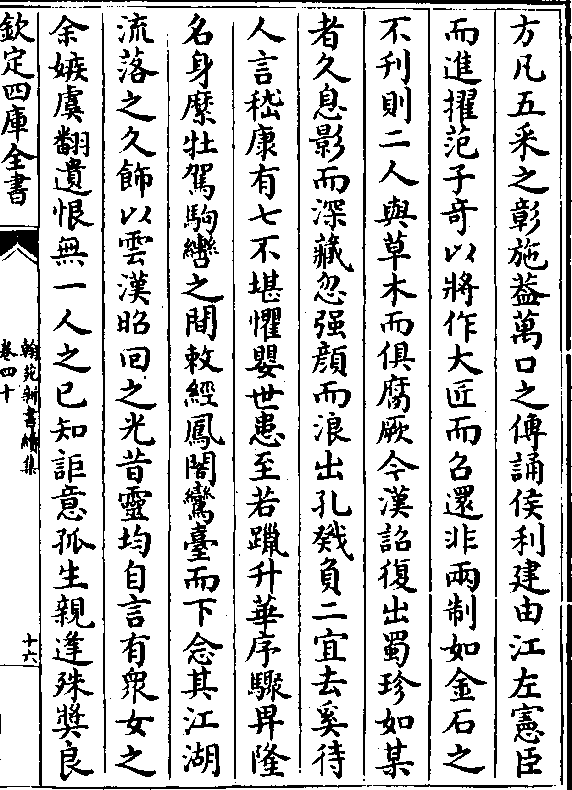 方凡五采之彰施益萬口之傳誦侯利建由江左憲臣
而進擢范子奇以將作大匠而召還非兩制如金石之
不刋則二人與草木而俱腐厥今漢詔復出蜀珍如某
者久息影而深藏忽强顔而浪出孔戣負二宜去奚待
人言嵇康有七不堪懼嬰世患至若躐升華序驟畀隆
名身縻牡駕駒轡之間敕經鳳閣鸞臺而下念其江湖
流落之久飾以雲漢昭回之光昔靈均自言有衆女之
余嫉虞翻遺恨無一人之已知詎意孤生親逢殊奬良
欽定四庫全書
翰苑新書續集
卷四十
十六